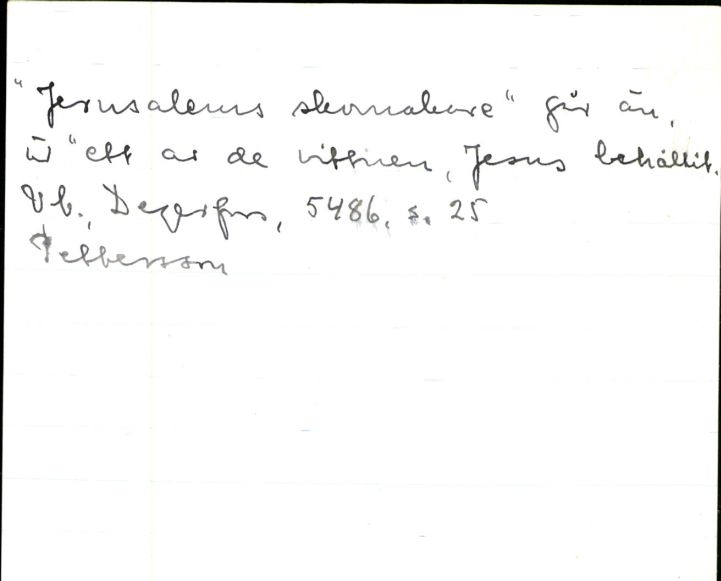 "Jerusalems skomakare" går än,
är "ett av de vittnen, Jesus behållit.
Vb., Degerfors, 5486, s. 25
Pettersson